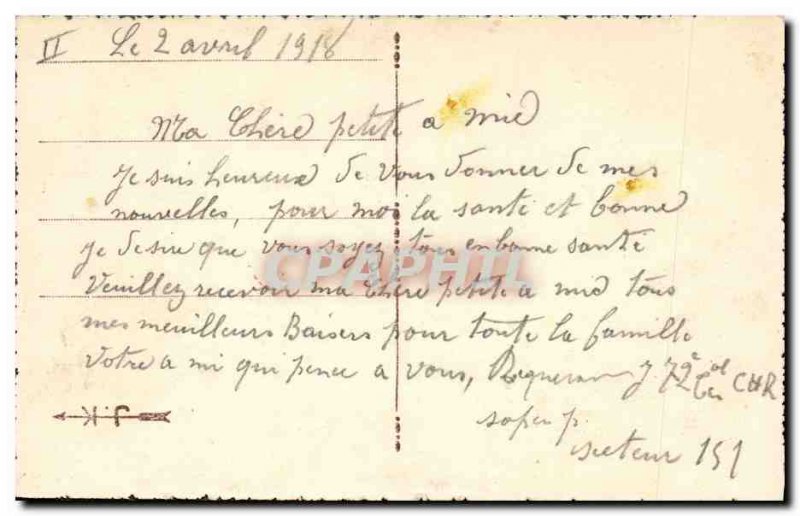 II Le 2 avril 1918
Ma Chère petite a mie
Je suis heureux de vous donner de mes
nouvelles, pour moi la santé et bonne
je desire que vous soyez tous en bonne santé
Veuillez recevoir ma chère petite a mie tous
mes meuilleurs Baisers pour toute la famille
Votre a mi qui pence a vous, 72e
CPAPHIL
J.K
secteur 151